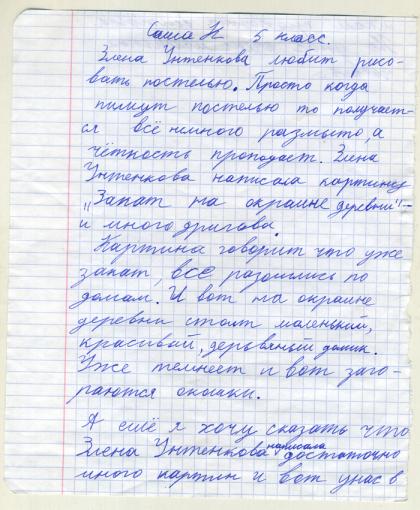 Саша К 5 класс.
Элена Унтенкова любит рисо-
вать постелью. Просто когда
пишут постелью то получает-
ся всё немного размыто, а
чёткость проподает. Элена
Унтенкова написала картину
"Закат на окраине деревни" -
и много другова.
Картина говорит что уже
закат, все разошлись по
домам. И вот на окраине
деревни стоит маленький,
красивый, деревяный домик.
Уже темнеет и вот заго-
раются окошки.
А ещё я хочу сказать что
Элена Унтенкова написала достаточно
много картин и вот у нас в